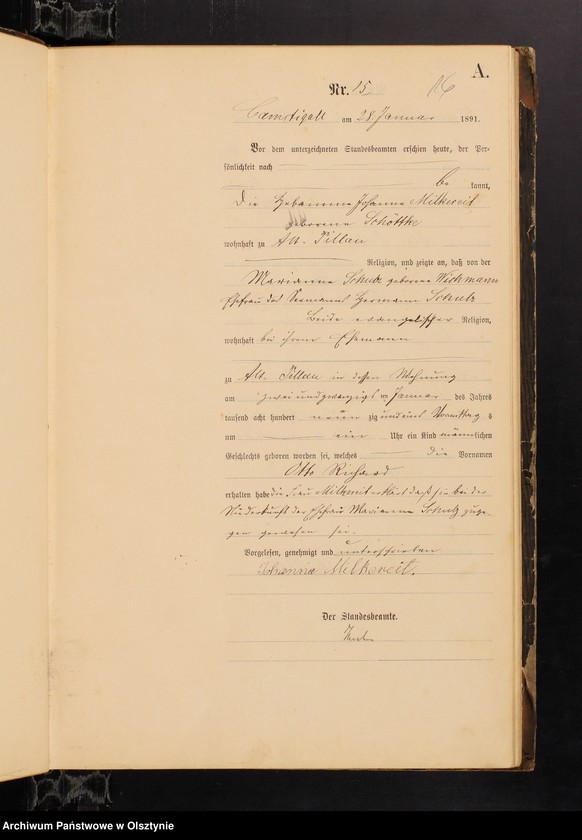 A.
Nr. 15
16
Camstigall am 28 Januar 1891.
Vor dem unterzeichneten Standesbeamten erschien heute, der Per-
sönlichkeit nach
be kannt,
Die Hebamme Johanna Milkereit
geborene
wohnhaft zu Alt. Pillau
Religion, und zeigte an, daß von der
Marianna Schulz geborene Wichmann
Ehefrau des Seemanns Hermann Schulz
Beide evangelischer Religion,
wohnhaft bei ihrem Ehemann
zu Alt. Pillau in dessen Wohnung
am zwei und zwanzigsten Januar des Jahres
tausend acht hundert neun zig und eins Vormittag s
um ein Uhr ein Kind männlichen
Geschlechts geboren worden sei, welches die Vornamen
Otto Richard
erhalten habe die Frau Milkereit erklärt daß sie bei der
Niederkunft der Ehefrau Marianna Schulz zuge-
gen gewesen sei.
Vorgelesen, genehmigt und unterschrieben
Johanna Milkereit.
Der Standesbeamte.
Archiwum Państwowe w Olsztynie